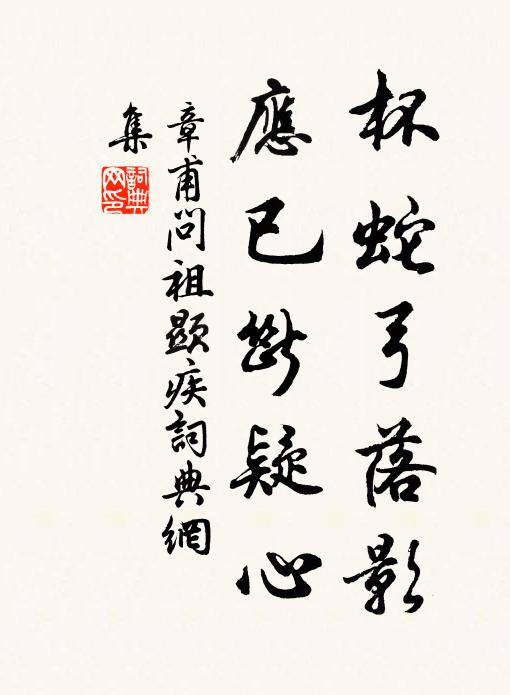 杯蛇弓落影
應已斷疑心
章甫問祖顯疾詞典網
集
詞典
网印